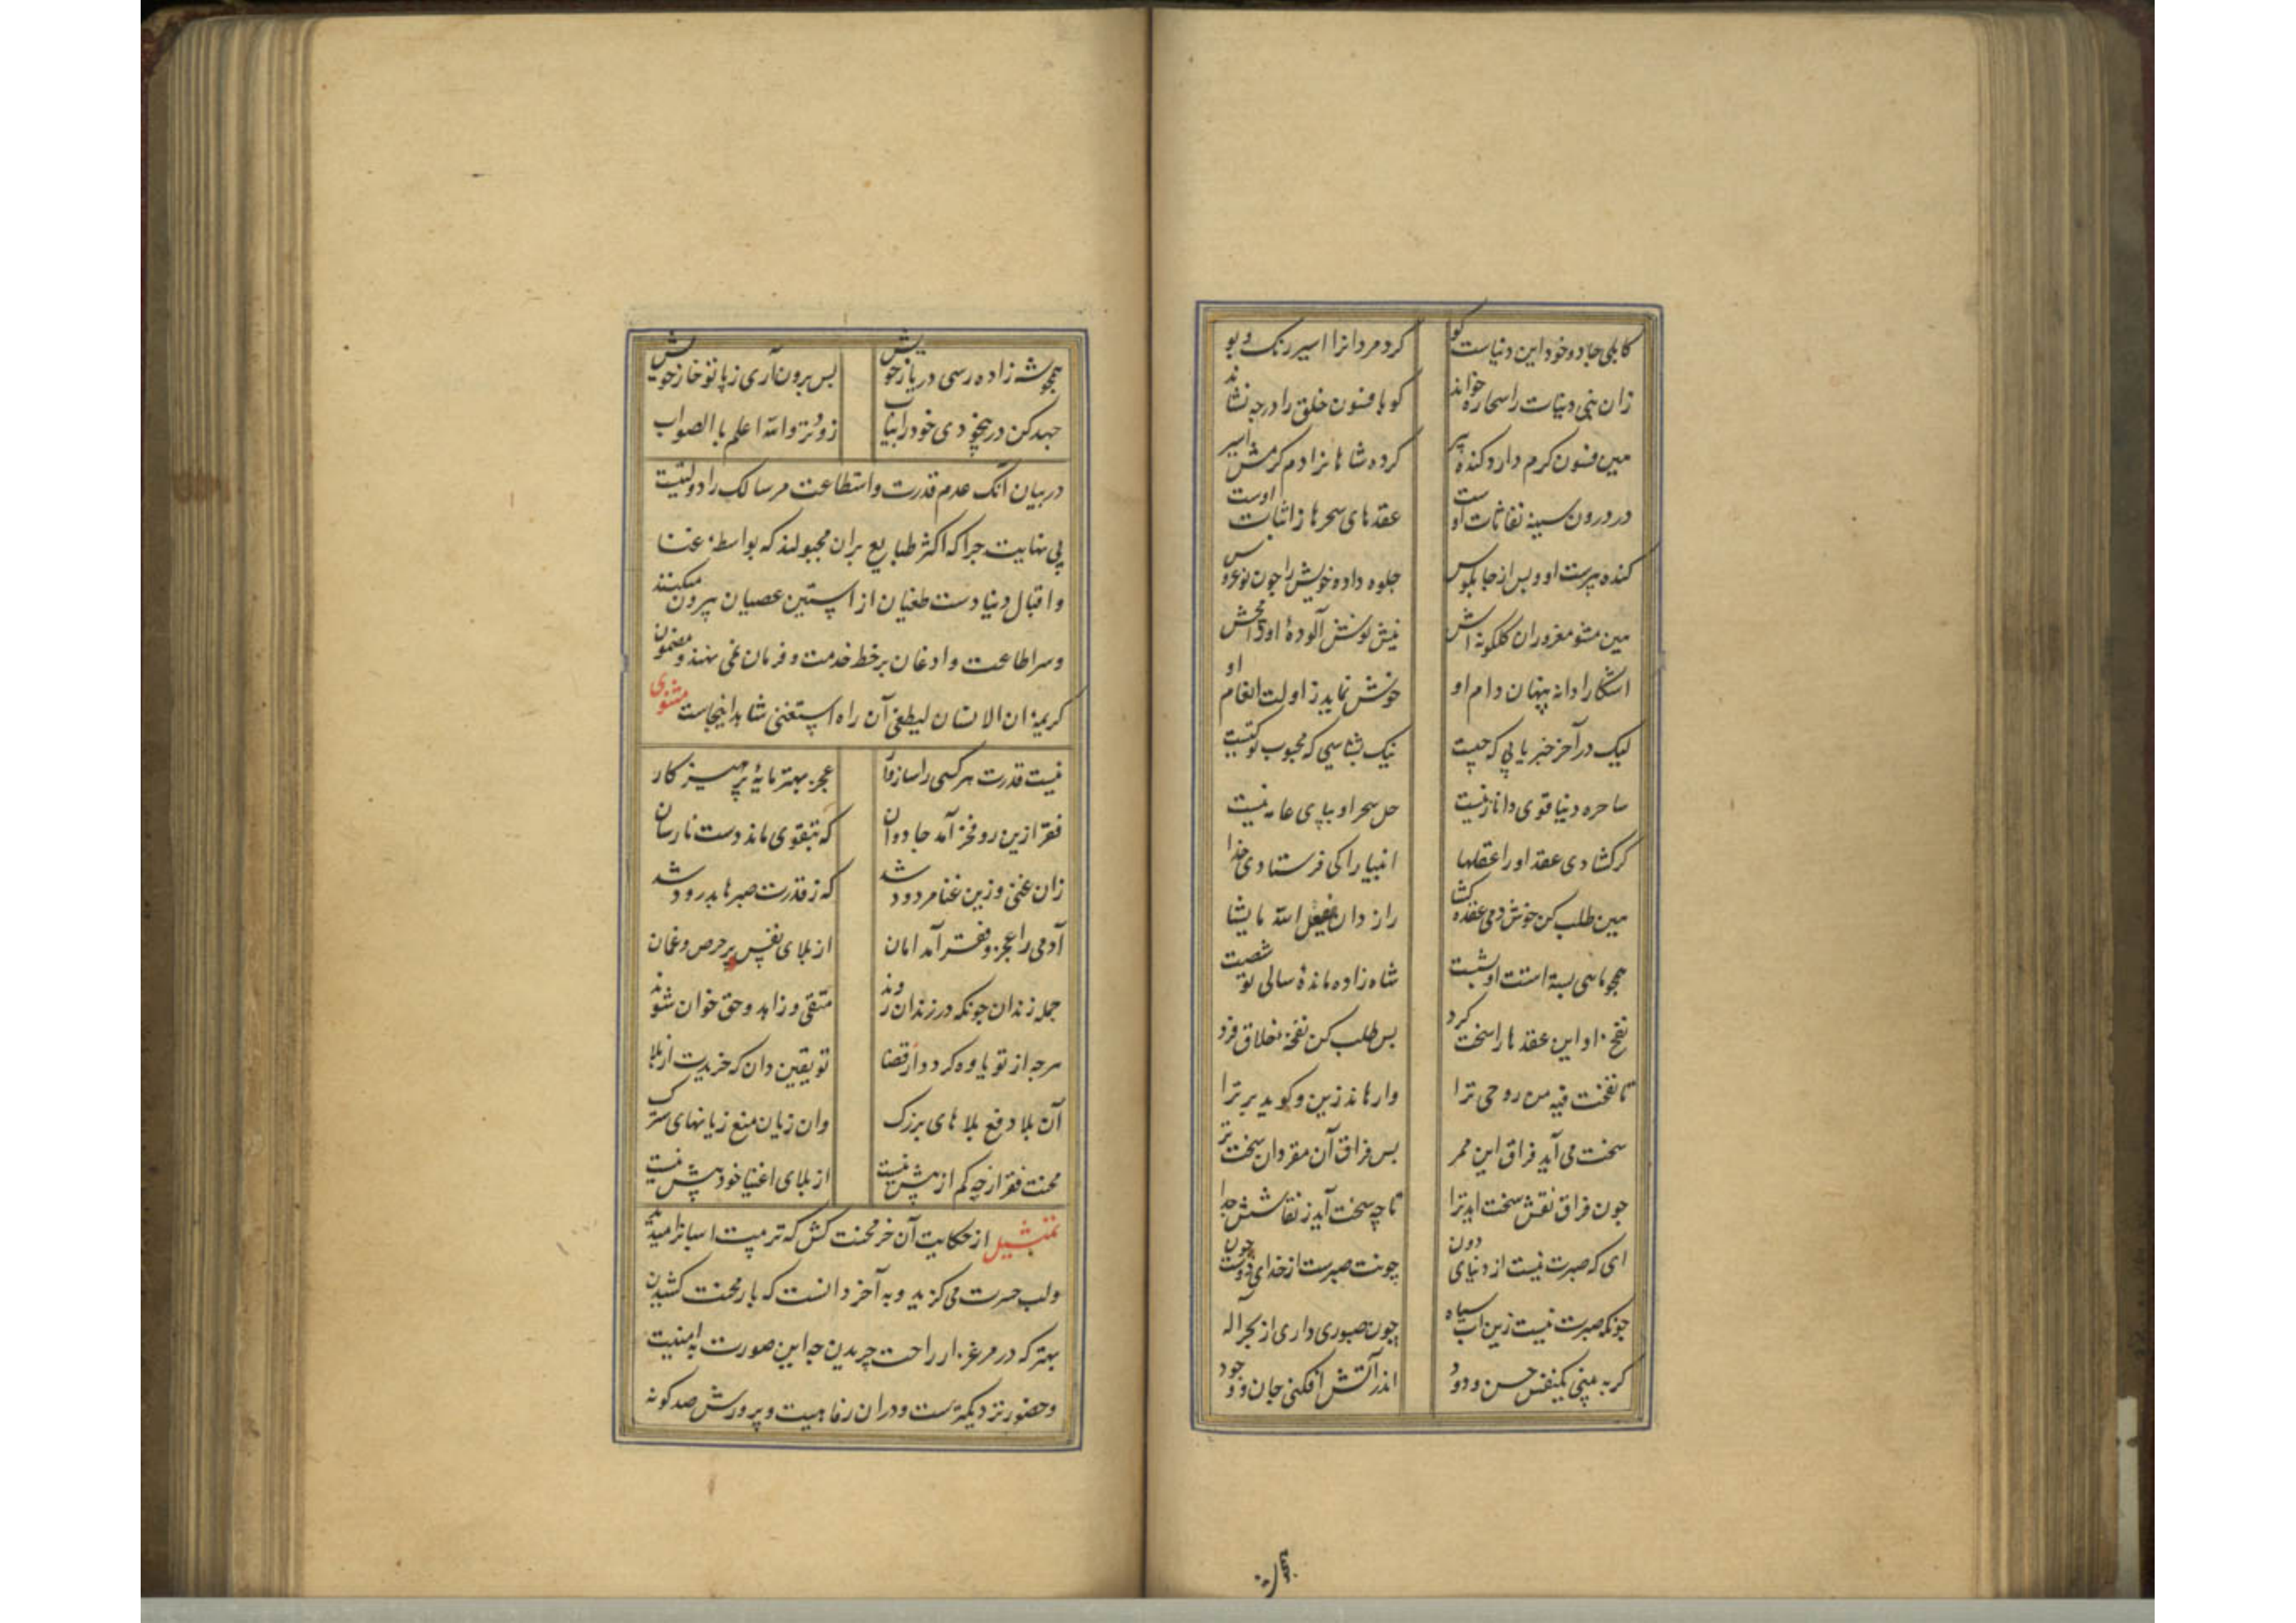 کابلی جادو خود این دنیاست کو کرد مردانرا اسیر رنک و بو
زان نبی دنیات را سحاره خواند کو بافسون خلق را در چه نشاند
هین فسون کرم دارد کنده پیر کرده شاهانرا دم کرمش اسیر
در درون سینه نفاثات اوست عقدهای سحرها ز اثبات اوست
کنده پیرست او و بس از چابلوس جلوه داده خویش را چون نو عروس
هین مشو مغرور ان کلکونه اش نیش نوش آلوده او
اشکارا دانه پنهان دام او خوش نماید ز اولت انعام او
لیک در آخر خبر یابی که چیست نیک بشناسی که محبوب تو کیست
ساحره دنیا قوی دانا زنیست حل سحر او بپای عامه نیست
کر کشادی عقد او را عقلها انبیا را کی فرستادی خدا
هین طلب کن خوش دمی عقده کشا راز دان یفعل الله ما یشا
همچو ماهی بسته است او بشست شاه زاده مانده سالی تو شصت
نفخ او این عقدها را سخت کرد بس طلب کن نفخه خلاق فرد
تا نفخت فیه من روحی ترا وارهاند زین و کوید برتر آ
سخت می آید فراق این ممر بس فراق آن مقر دان سخت تر
چون فراق نقش سخت اید ترا تا چه سخت آید ز نقاشش جدا
ای که صبرت نیست از دنیای دون چونت صبرست از خدای دوست چون
چونکه صبرت نیست زین اب سیاه چون صبوری داری از بحر اله
کر به بینی یکنفس حسن ودود اندر آتش افکنی جان و وجود
همچو شه زاده رسی در یار خویش بس برون آری ز پا تو خار خویش
جهد کن در بیخودی خود را بیاب زودتر والله اعلم بالصواب
در بیان آنک عدم قدرت و استطاعت مر سالک را دولتیست
بی نهایت چرا که اکثر طبایع بران مجبولند که بواسطه غنا
و اقبال دنیا دست طغیان از استین عصیان بیرون میکنند
و سر اطاعت و ادغان بر خط خدمت و فرمان نمی نهند و مضمون
کریمه ان الانسان لیطغی آن راه استغنی شاهد اینجاست مثنوی
نیست قدرت هر کسی را سازوار عجز بهتر مایه پرهیز کار
فقر ازین رو فخر آمد جاودان که بتقوی ماند دست نارسان
زان غنی و زین غنا مردود شد که ز قدرت صبرها بدرود شد
آدمی را عجز و فقر آمد امان از بلای نفس پر حرص و غمان
جمله رندان چونکه در زندان روند متقی و زاهد و حق خوان شوند
هرچه از تو یاوه کردد از قضا تو یقین دان که خریدت از بلا
آن بلا دفع بلاهای بزرک وان زیان منع زیانهای سترک
محنت فقر ارچه کم از بیش نیست از بلای اغنیا خود بیش نیست
تمثیل از حکایت آن خر محنت کش که تربیت اسبانرا میدید
و لب حسرت می کزید و به آخر دانست که بار محنت کشیدن
بهتر که در مرغزار راحت چریدن چه این صورت به امنیت
و حضور نزدیکترست و در ان رفاهیت و پرورش صد کونه